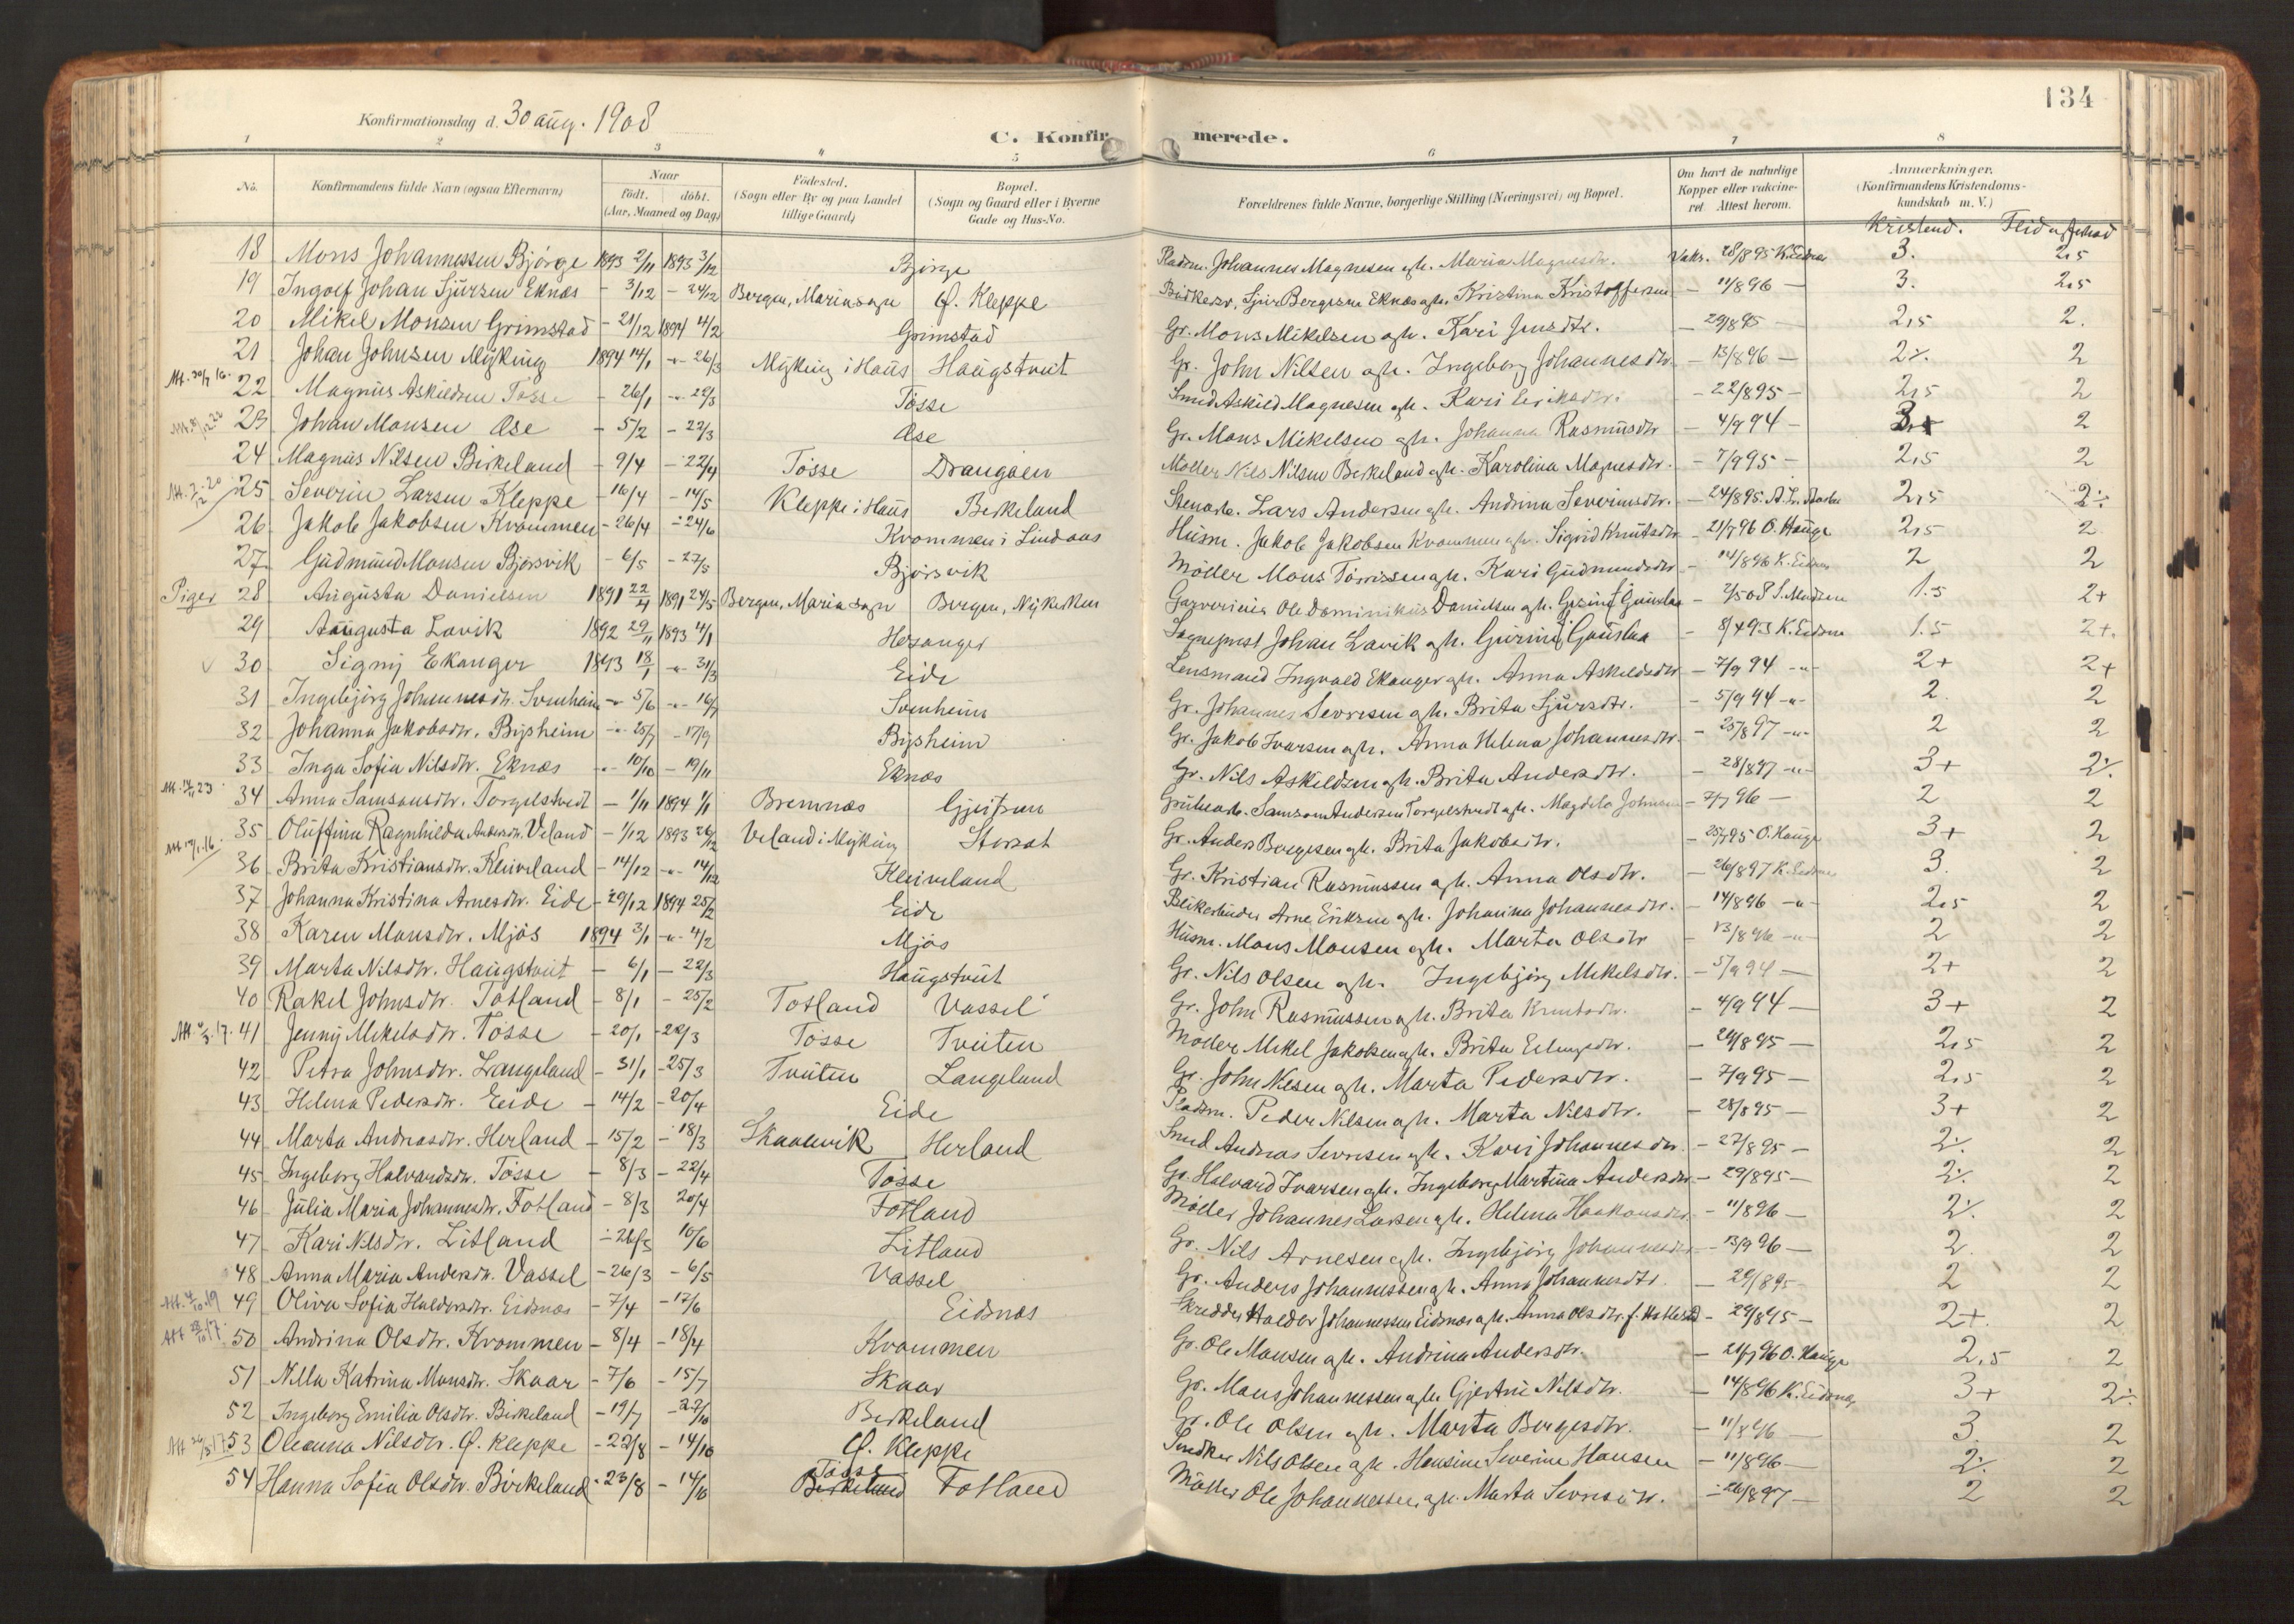 134
Konfirmationsdag d. 30 aug. 1908
C. Konfirmerede.
1 2 3 4 5 6 7 8
No. Konfirmandens fulde Navn (ogsaa Efternavn) Naar født. døbt. (Aar, Maaned og Dag) Fødested. (Sogn eller By og paa Landet tillige Gaard) Bopæl. (Sogn og Gaard eller i Byerne Gade og Hus-No. Forældrenes fulde Navne, borgerlige Stilling (Næringsvei) og Bopæl. Om havt de naturlige Kopper eller vakcineret. Attest herom. Anmærkninger. (Konfirmandens Kristendomskundskab m. V.)
Kristend. Flid og
18 Mons Johannessen Bjørge 1893 2/11 1893 3/12 Bjørge Pladsm. Johannes Magnesen og h. Maria Magnesdtr. Vakc. 28/8 95 K. Eidnes 3. 2,5
19 Ingolf Johan Sjursen Eknæs - 3/12 - 24/12 Bergen, Mariasogn Ø. Kleppe Sjur Bergesen Eknæs og h. Kristina Kristoffersen - 11/8 96 - 3. 2,5
20 Mikel Monsen Grimstad - 21/12 1894 11/2 Grimstad Gr. Mons Mikelsen og h. Kari Jensdtr. - 29/8 95 - 2,5 2.
21 Johan Johnsen Myking 1894 14/1 -"- 26/3 Myking i Haus Haugstvut Gr. John Nilsen og h. Ingeborg Johannesdtr. - 13/8 96 - 2·/. 2
Att. 20/7 16. 22 Magnus Askildsen Tosse - 26/1 -"- 22/3 Tosse Smed Askild Magnesen og h. Kari Eriksdtr. - 22/8 95 - 2,5 2
23 Johan Monsen Ase - 5/2 - 22/3 Ase Gr. Mons Mikelsen og h. Johanna Rasmusdtr - 4/9 94 - 3+ 2
24 Magnus Nilsen Birkeland - 9/4 - 22/4 Tosse Draugøen Møller Nils Nilsen Birkeland og h. Karolina Magnesdtr. - 7/9 95 - 2,5 2
Att. 2/12 20 25 Severin Larsen Kleppe - 16/4 - 14/5 Kleppe i Haus Birkeland Stenarb. Lars Andersen og h. Andrina Severinsdtr. - 24/8 95. 2,5 2·/.
26 Jakob Jakobsen Kvammen - 26/4 - 24/6 Kvammen i Lindaas Husm. Jakob Jakobsen Kvammen og h. Sigrid Knutsdtr - 21/7 96 O. Hauge 2,5 2
27 Gudmund Monsen Bjørsvik - 6/5 - 27/5 Bjørsvik Møller Mons Tørrissen og h. Kari Gudmundsdtr - 14/8 96 K. Eidnes 2 2
Piger 28 Augusta Danielsen 1891 22/4 1891 24/5 Bergen, Mariasogn Bergen, Nykirken Ole Dominikus Danielsen og h. - 2/5 08 1.5 2+
29 Aaugusta Lavik 1892 29/11 1893 4/1 Hosanger Sogneprest Johan Lavik og h. - 8/4 93 K. Eidnes 1.5 2+.
30 Signy Ekanger 1893 18/1 -"- 31/3 Eide Lensmand Ingvald Ekanger og h. Anna Askildsdtr - 7/9 94 -"- 2+ 2+
31 Ingebjørg Johannesdtr. Svenheim -"- 5/6 -"- 16/7 Svenheim Gr. Johannes Severesen og h. Brita Sjursdtr. - 5/9 94 -"- 2. 2
32 Johanna Jakobsdtr. Bysheim -"- 25/7 - 17/9 Bysheim Gr. Jakob Ivarsen og h. Anna Helena Johannesdtr. - 25/8 97 -"- 2 2
33 Inga Sofia Nilsdtr. Eknæs -"- 10/10 - 19/11 Eknæs Gr. Nils Askildsen og h. Brita Andersdtr. - 28/8 97 -"- 3+ 2·/.
34 Anna Samsonsdtr. Torgelstvedt - 1/11 1894 1/1 Bremnæs Samson Andersen Torgelstvedt og h. Magdela Johnsen - 7/7 96 - 2 2
35 Oluffina Ragnhilda Andersdtr. Veland - 1/12 1893 26/12 Veland i Myking Storset Gr. Anders Bergesen og h. Brita Jakobsdtr. - 25/7 95 O. Hauge 3+ 2
36 Brita Kristiansdtr. Kleiveland - 14/12 -"- 14/12 Kleiveland Gr. Kristian Rasmussen og h. Anna Olsdtr. - 26/8 97 K. Eidnes 3. 2
37 Johanna Kristina Arnesdtr. Eide - 29/12 1894 25/2 Eide Arne Eriksen og h. Johanna Johannesdtr. - 14/8 96 -"- 2,5 2
38 Karen Monsdtr. Mjøs 1894 3/1 -"- 4/2 Mjøs Husm. Mons Monsen og h. Marta Olsdtr - 13/8 96 -"- 2 2
39 Marta Nilsdtr. Haugstvut - 6/1 - 22/3 Haugstvut Gr. Nils Olsen og h. Ingebjørg Mikelsdtr. - 5/9 94 - 2+ 2
40 Rakel Johnsdtr. Totland - 8/1 - 25/2 Totland Vassel Gr. John Rasmussen og h. Brita Knutsdtr. - 4/9 94 - 3+ 2
41 Jenny Mikelsdtr. Tosse - 20/1 - 22/3 Tosse Tveiten Møller Mikel Jakobsen og h. Brita Erlingsdtr. - 24/8 95 - 2,5 2
42 Petra Johnsdtr. Langeland - 31/1 - 25/3 Tveiten Langeland Gr. John Nilsen og h. Marta Pedersdtr. - 7/9 95 - 2,5 2
43 Helena Pedersdtr. Eide - 14/2 - 20/4 Eide Pladsm. Peder Nilsen og h. Marta Nilsdtr. - 28/8 95 - 3+ 2
44 Marta Andreasdtr. Herland - 15/2 - 18/3 Skaanevik Herland Smed Andreas Severesen og h. Kari Johannesdtr. - 27/8 95 - 2·/. 2
45 Ingeborg Halvardsdtr. Tosse - 8/3 - 22/4 Tosse Gr. Halvard Ivarsen og h. Ingeborg Martina Andersdtr - 29/8 95 - 2·/. 2
46 Julia Maria Johannesdtr. Fotland - 8/3 20/4 Fotland Møller Johannes Larsen og h. Helena Haakonsdtr. - 11/8 96 - 2·/. 2
47 Kari Nilsdtr. Litland - 26/3 10/6 Litland Gr. Nils Arnesen og h. Ingebjørg Johannesdtr - 13/9 96 - 2. 2
48 Anna Maria Andersdtr. Vassel - 26/3 - 6/5 Vassel Gr. Anders Johannessen og h. Anna Johannesdtr. - 29/8 95 2 2
49 Oliva Sofia Haldorsdtr. Eidsnæs - 7/4 - 17/6 Eidsnæs Skredder Haldor Johannessen Eidsnæs og h. Anna Olsdtr. - 29/8 95 - 2+ 2
50 Andrina Olsdtr. Kvammen - 8/4 - 18/4 Kvammen Gr. Ole Monsen og h. Andrina Andersdtr. - 21/7 96 O. Hauge 2,5 2
51 Nilla Katrina Monsdtr. Skaar - 7/6 - 15/7 Skaar Gr. Mons Johannessen og h. Gjertrui Nilsdtr. - 14/8 96 K. Eidnes 3+ 2·/.
52 Ingeborg Emilia Olsdtr. Birkeland - 19/7 - 22/10 Birkeland Gr. Ole Olsen og h. Marta Bergesdtr. - 11/8 96 - 3. 2
53 Oleanna Nilsdtr. Ø. Kleppe - 22/8 - 14/10 Ø. Kleppe Snedker Nils Olsen og h. Hansine Severine Hansen - 11/8 96 - 2·/. 2
54 Hanna Sofia Olsdtr. Birkeland - 23/8 - 14/10 Tosse Birkeland Fotland Møller Ole Johannessen og h. Marta Severesdtr. - 26/8 97 - 2 2